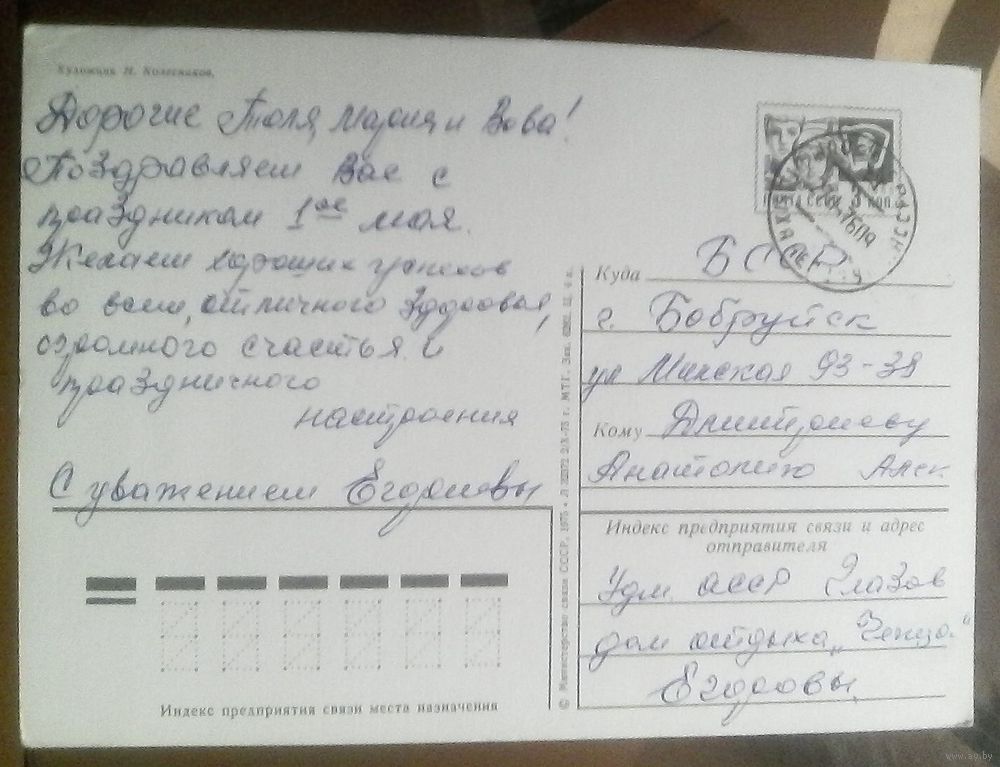 Художник Н. Колесников.
Дорогие Толя, Мария и Вова!
Поздравляем Вас с
праздником 1ое мая.
Желаем хороших успехов
во всем, отличного здоровья,
огромного счастья и
праздничного
настроения
С уважением Егоровы
Индекс предприятия связи места назначения
© Министерство связи СССР, 1975
МТГ. Зак. Ц. 4 к.
ПОЧТА СССР
Куда БССР
г. Бобруйск
ул Минская 93-38
Кому
Анатолию Алек
Индекс предприятия связи и адрес
отправителя
Удм. АССР Глазов
дом отдыха „Чепца“
Егоровы
www.ay.by